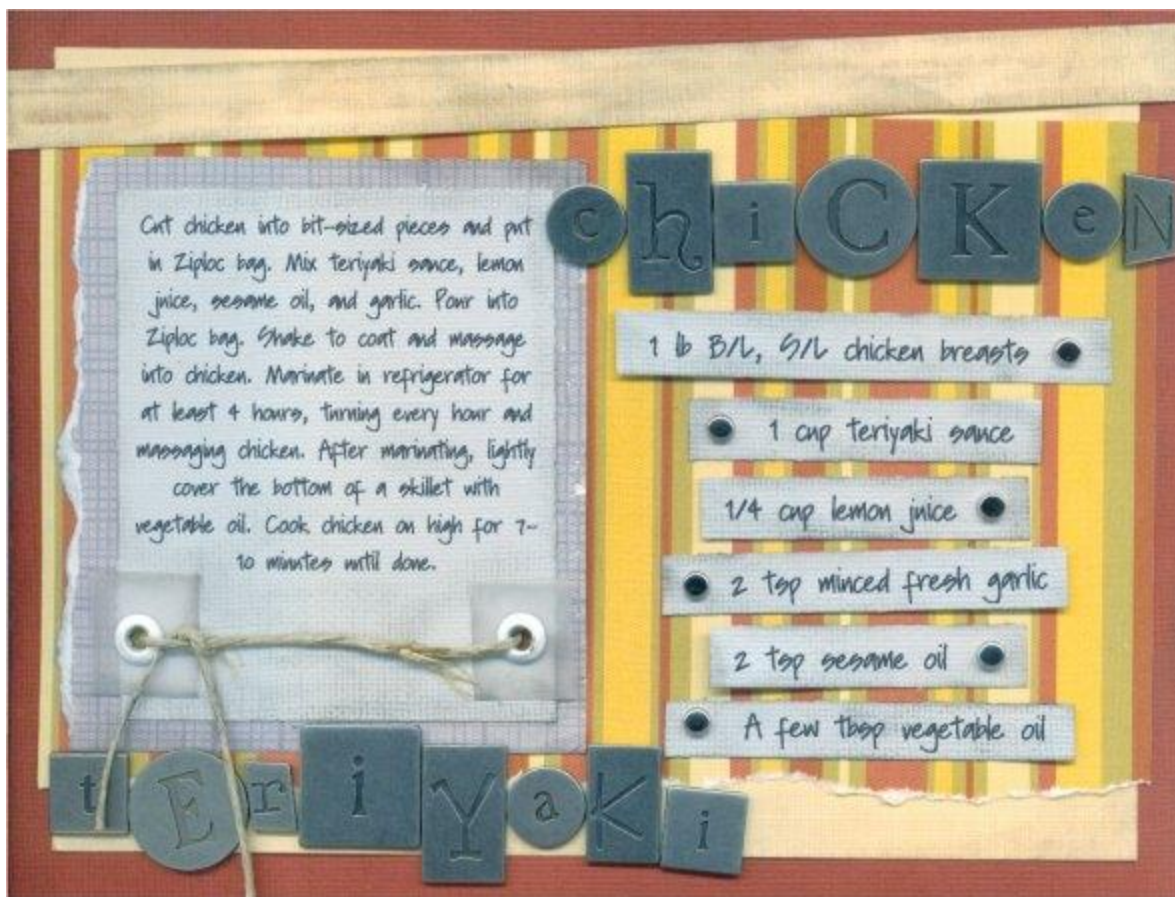 chiCKeN
Cut chicken into bit-sized pieces and put
in Ziploc bag. Mix teriyaki sauce, lemon
juice, sesame oil, and garlic. Pour into
Ziploc bag. Shake to coat and massage
into chicken. Marinate in refrigerator for
at least 4 hours, turning every hour and
massaging chicken. After marinating, lightly
cover the bottom of a skillet with
vegetable oil. Cook chicken on high for 7-
10 minutes until done.
1 lb B/L, S/L chicken breasts
1 cup teriyaki sauce
1/4 cup lemon juice
2 tsp minced fresh garlic
2 tsp sesame oil
A few tbsp vegetable oil
tEriYaKi